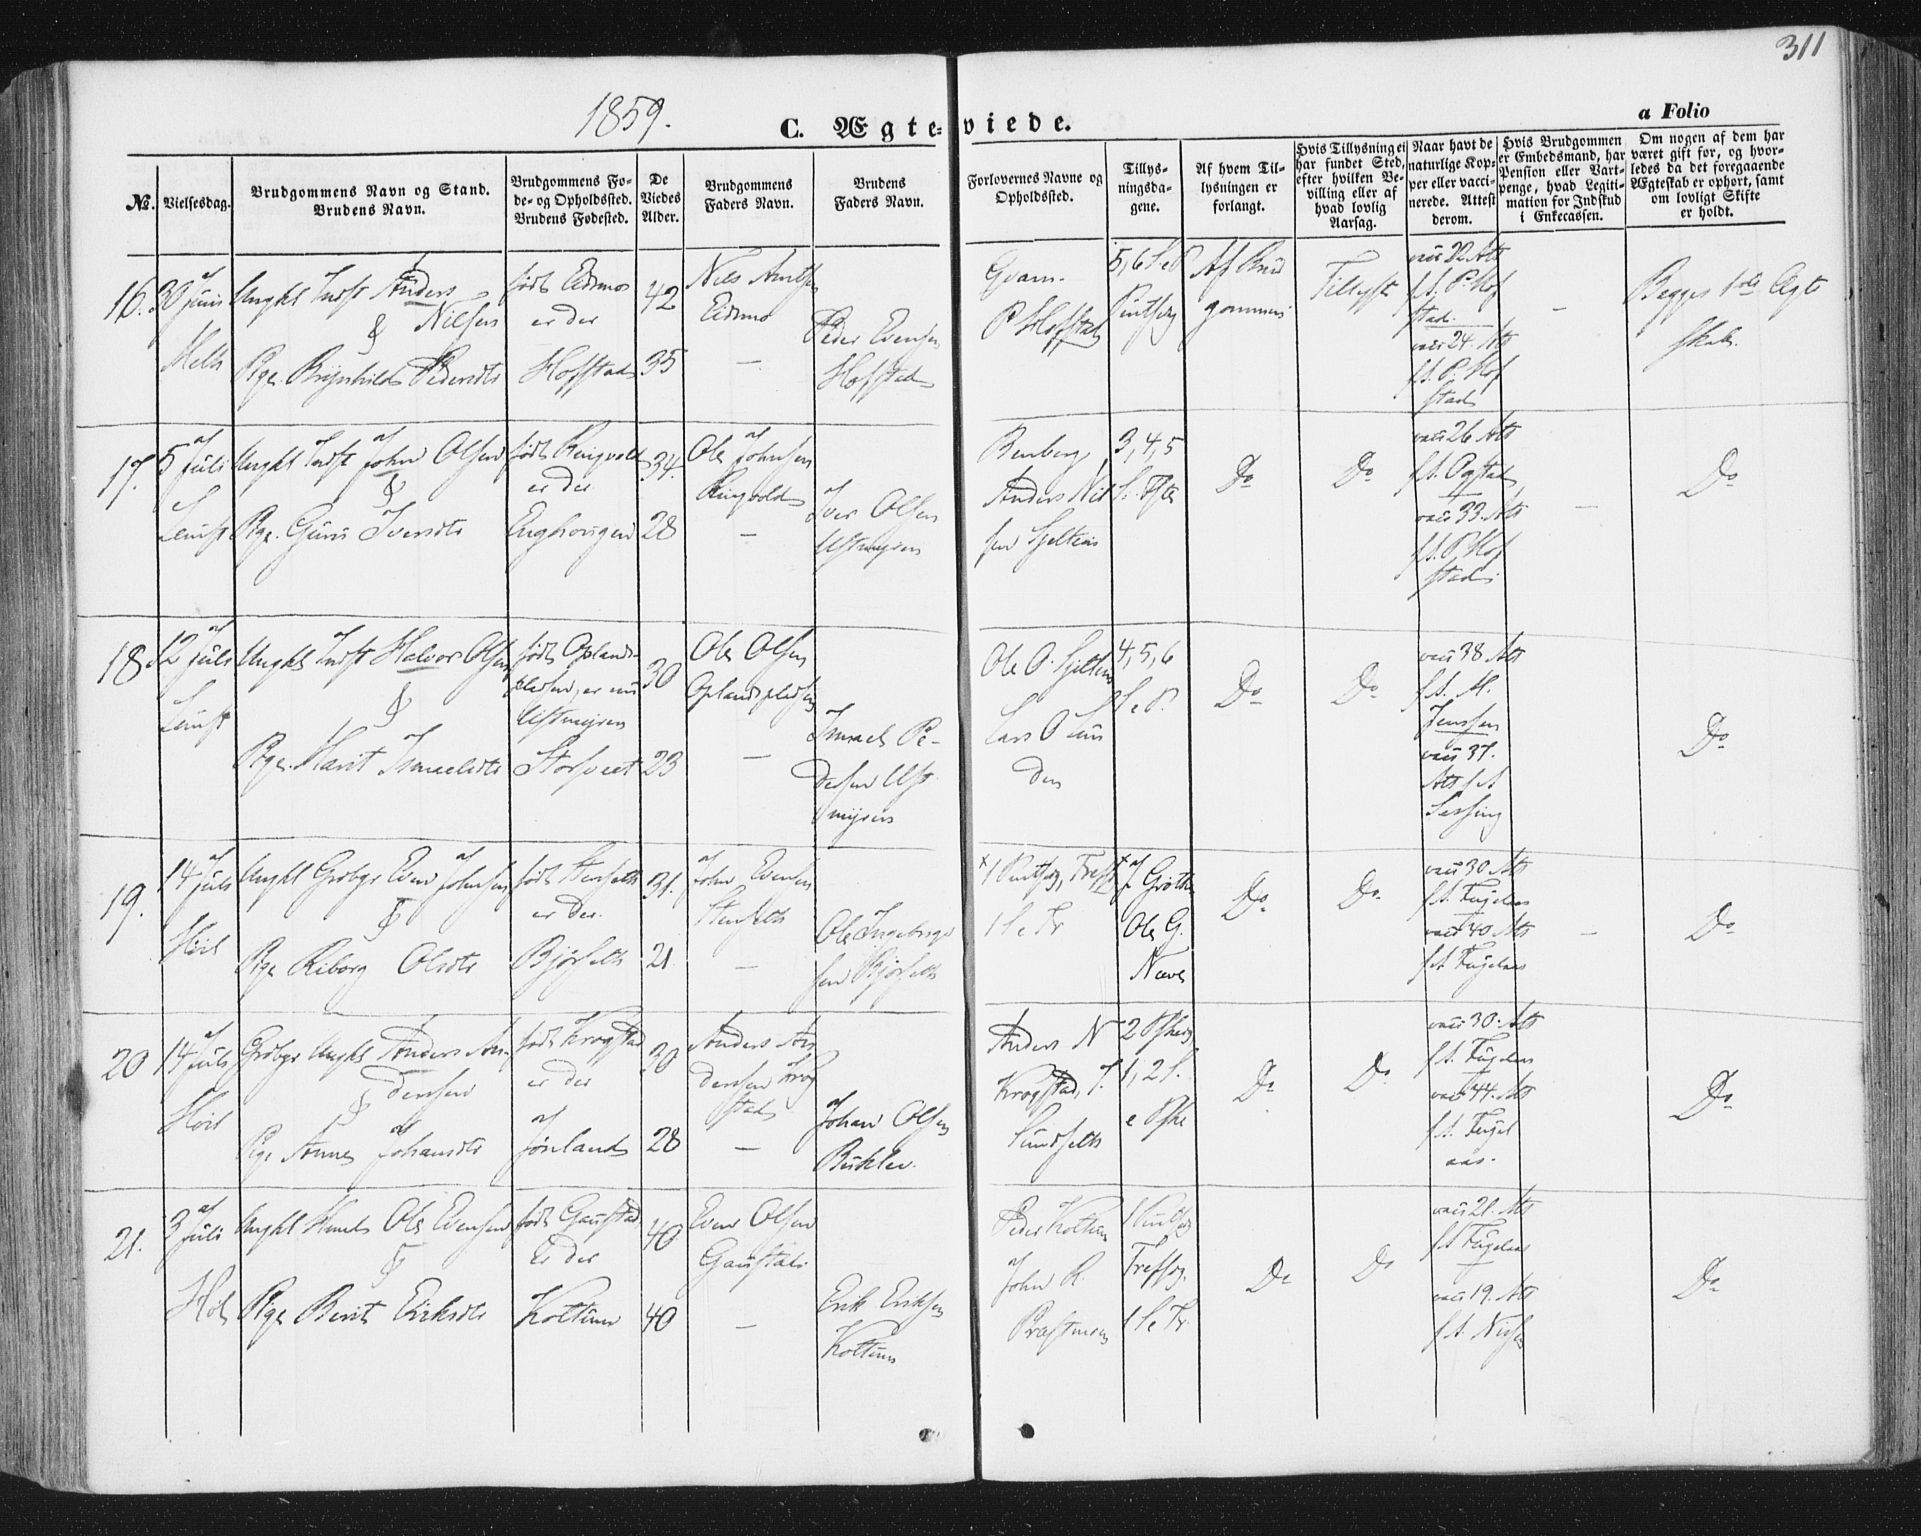 311
1859.
C. Ægteviede.
a Folio
No.
Vielsesdag.
Brudgommens Navn og Stand.
Brudens Navn.
Brudgommens Fø-
de- og Opholdssted.
Brudens Fødested.
De
Viedes
Alder.
Brudgommens
Faders Navn.
Brudens
Faders Navn.
Forlovernes Navne og
Opholdssted.
Tillys-
ningsda-
gene.
Af hvem Til-
lysningen er
forlangt.
Hvis Tillysning ei
har fundet Sted,
efter hvilken Be-
villing eller af
hvad lovlig
Aarsag.
Naar havt de
naturlige Kop-
per eller vacci-
nerede. Attest
derom.
Hvis Brudgommen
er Embedsmand, har
Pension eller Vart-
penge, hvad Legiti-
mation for Indskud
i Enkecassen.
Om nogen af dem har
været gift før, og hvor-
ledes da det foregaaende
Ægteskab er ophørt, samt
om lovligt Skifte
er holdt.
16. 30 Juni
Melh
Ungkl Indst Anders
& Nilsen
Pige Brynhild Pedersdtr
født Eidsmo
er der
Hofstad
42
35
Nils Arntsen
Eidsmo
—
Peder Evensen
Hofstad
Gvam
P Hofstad
5, 6 S. e P
Pintsdag
Af Brud
gommen
Tillyst
vacc 22 Att
f. A. P. Hof
stad.
vacc 24. Att
f. A. P. Hof
stad
—
Begges 1ste Ægte
skab.
17. 5 Juli
Ungkl Indst John Olsen
&
Pige Guru Iversdtr
født Ringvold
er der
Enghougen
34.
28
Ole Johnsen
Ringvold
—
Iver Olsen
Ustmyren
Benberg
Anders Nil
sen Gjeltein
3, 4, 5
Do
Do
vacc 26 Att
f. A.
vacc 33. Att
f. A. P. Hof
stad
—
Do
18 12 Juli
Ungkl Indst Halvor Olsen
&
Pige Marit Ismaelsdtr
født Oplands-
pladsen, er nu
Ustmyren
Storsveet
30
23
Ole Olsen
Oplandspladsen
—
Ismael Pe-
dersen Ust
myren
Ole O. Gjeltein
Lars O Lun
den
4, 5, 6
S. e. P.
Do
Do
vacc 38 Att
f. A. M.
Jenssen
vacc 37.
Att f A
Lessing
Do
19. 14 Juli
Høil
Ungkl Grdbgr Even Johnsen
&
Pige Kiborg Olsdtr
er der.
31.
21
John Evensen
—
Ole Ingebrigt
sen
1 S e Tr
Ole G.
Do
Do
vacc 30 Att
f. A. Fuglaas
vacc 40 Att
f A Fuglaas
—
Do
20 14 Juli
Høil
Grdbgr Ungkl Anders An-
dersen
&
Pige Anne Johansdtr
født Krogstad
er der
Jønland
30
28
Anders An
dersen Krog
stad
—
Johan Olsen
Anders N
Krogstad, J.
1, 2 S.
e
Do
Do
vacc 30. Att
f. A. Fuglaas
vacc 44. Att
f. A. Fugl
aas.
Do
21. 3 Juli
Høl
Ungkl Ole Evensen
&
Pige Berit Eriksdtr
født Gaustad
er der
Koltum
40
40
Even Olsen
Gaustad
—
Erik Eriksen
Koltum
Peder Koltum
John R.
Præstmoen
1
1 S e Tr.
Do
Do
vacc 21. Att
f A Fuglaas
vacc 19. Att
f. A.
Do